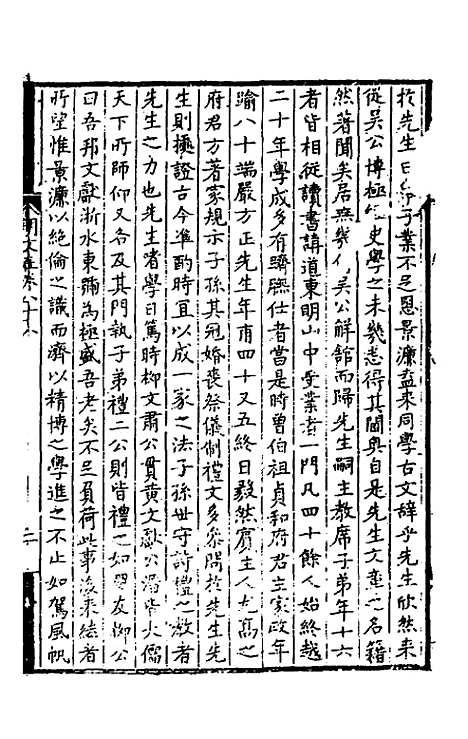 於先生曰學子業不足恩景濂盍來同學古文辭乎先生欣然來
從吳公博極史學之未幾悉得其閫奧自是先生文章之名籍
然著聞矣居無幾何吳公解館而歸先生嗣主教席子弟年十六
者皆相從讀書講道東明山中受業者一門凡四十餘人始終越
二十年學成多有躋膴仕者當是時曾伯祖貞和府君主家政年
踰八十端嚴方正先生年甫四十又五終日毅然賓主人尤高之
府君方著家規示子孫其冠婚喪祭儀制禮文多叅閱於先生先
生則援證古今準酌時宜以成一家之法子孫世守詩禮之教者
先生之力也先生猪學日篤時柳文肅公貫黃文獻公溍皆大儒
天下所師仰又各及其門執子弟禮二公則皆禮之如朋友柳公
曰吾邦文獻浙水東彌為極盛吾老矣不足負荷此事後來繼者
所望惟景濂以絕倫之識而濟以精博之學進之不止如駕風帆
明文海卷八十六
二